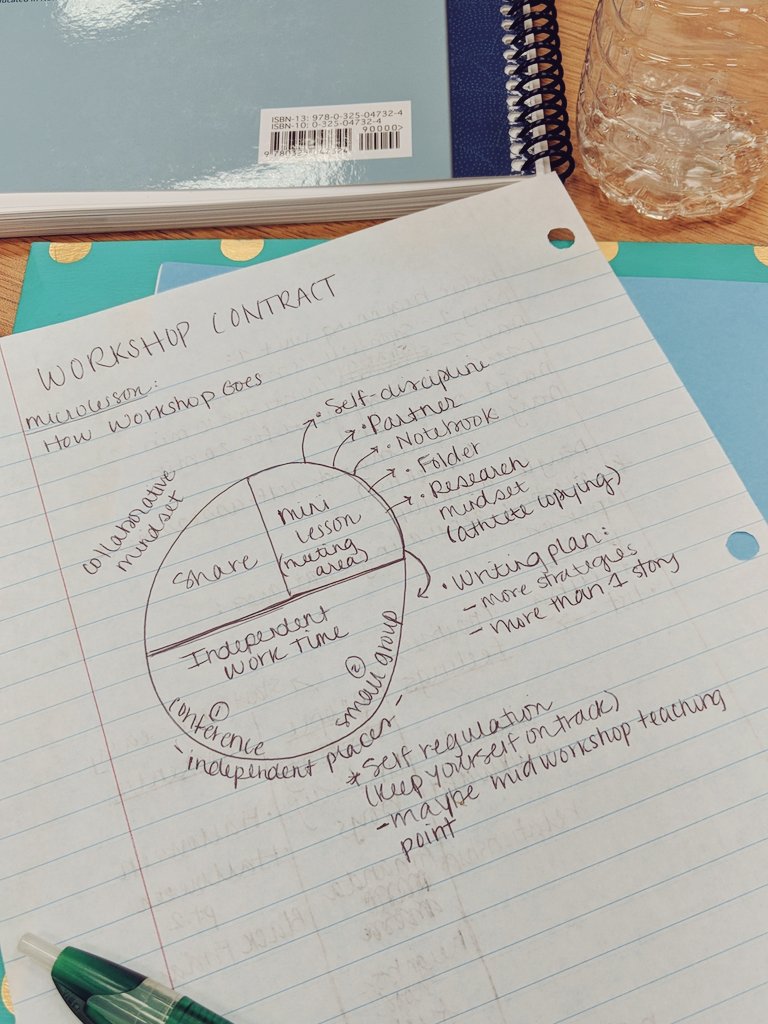 ISBN-13: 978-0-325-04732-4
ISBN-10: 0-325-04732-4
90000>
WORKSHOP CONTRACT
microlesson:
How Workshop Goes
• Self-discipline
• Partner
• Notebook
• Folder
• Research
mindset
(athlete copying)
collaborative
mindset
share
mini
lesson
(meeting
area)
• Writing plan:
- more strategies
- more than 1 story
Independent
work time
①
conference
②
small group
- independent places -
*Self regulation
(keep yourself on track)
- maybe mid workshop teaching
point